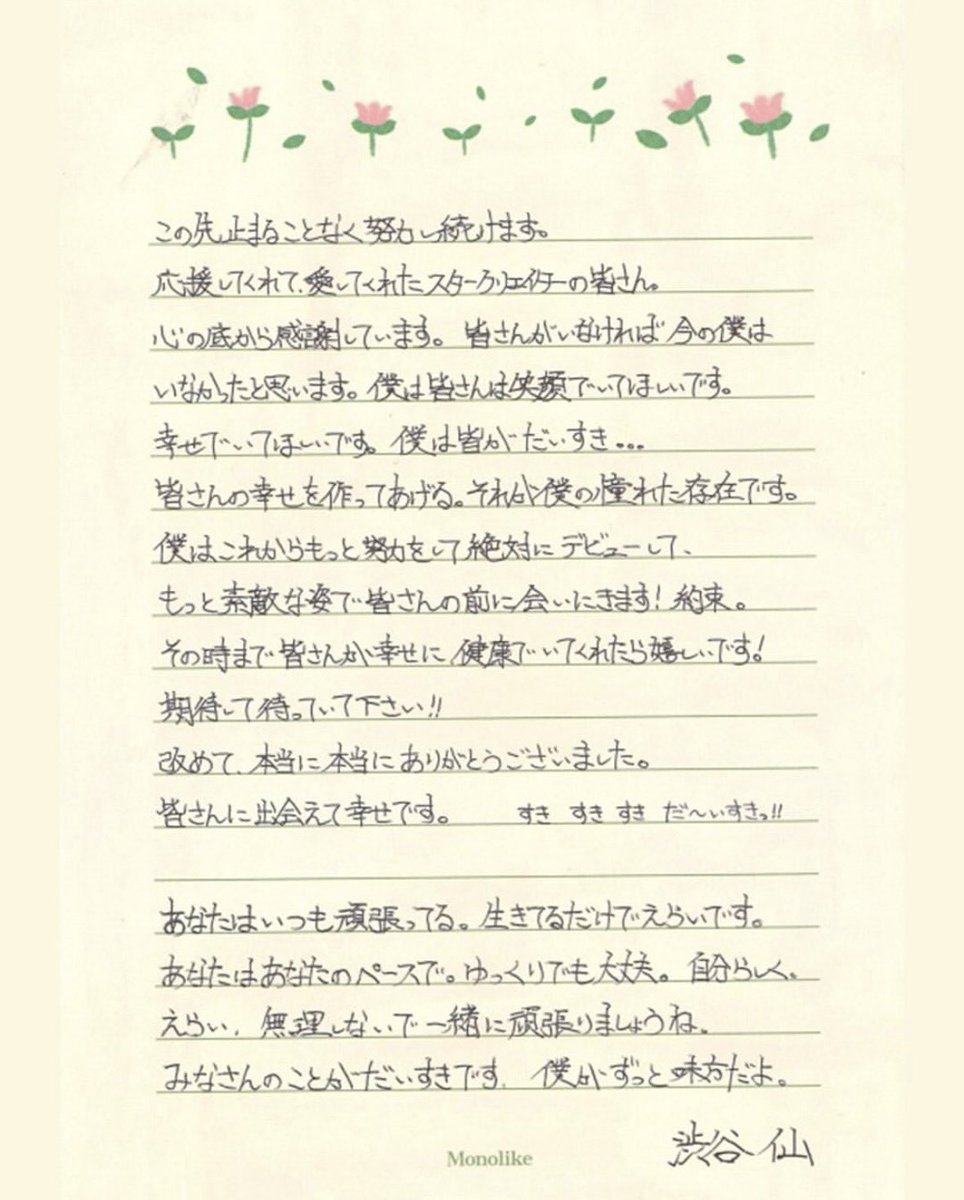 この先止まることなく努力し続けます。
応援してくれて、愛してくれたスタークリエイターの皆さん。
心の底から感謝しています。皆さんがいなければ今の僕は
いなかったと思います。僕は皆さんは笑顔でいてほしいです。
幸せでいてほしいです。僕は皆がだいすき...
皆さんの幸せを作ってあげる。それが僕の憧れた存在です。
僕はこれからもっと努力をして絶対にデビューして、
もっと素敵な姿で皆さんの前に会いにきます!約束。
その時まで皆さんが幸せに、健康でいてくれたら嬉しいです!
期待して待っていて下さい!!
改めて、本当に本当にありがとうございました。
皆さんに出会えて幸せです。 すき すき すき だ〜いすきっ!!
あなたはいつも頑張ってる。生きてるだけでえらいです。
あなたはあなたのペースで。ゆっくりでも大丈夫。自分らしく。
えらい、無理しないで一緒に頑張りましょうね。
みなさんのことがだいすきです、僕がずっと味方だよ。
渋谷 仙
Monolike